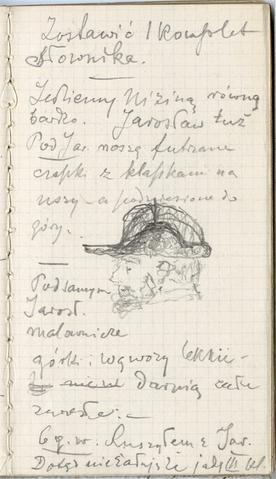 Zostawić 1 komplet
słownika.
Jedziemy niziną równą
bardzo. Jarosław tuż
Pod Jar. noszą futrzane
czapki z klapkami na
uszy – a podniesione do
góry. –
Pod samym
Jarosł.
malownicze
górki i wąwozy lekkie –
Darnią całe
6 g. w. Ruszyłem z Jar.
Dotąd nie żałuję że jadę III kl.